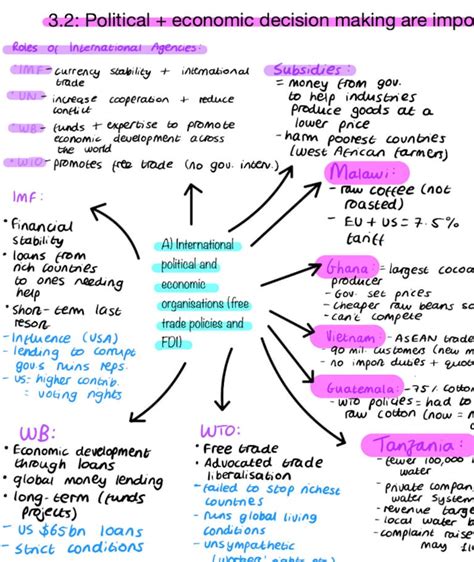 3.2: Political + economic decision making are impo
Roles of International Agencies:
• IMF - currency stability + international
trade
• UN - increase cooperation + reduce
conflict
• WB - funds + expertise to promote
economic development across
the world
• WTO - promotes free trade (no gov. interv.)
Subsidies:
= money from gov.
to help industries
produce goods at a
lower price
- harm poorest countries
(west African farmers)
Malawi:
- raw coffee (not
roasted)
- EU + US = 7.5%
tariff
IMF:
• Financial
stability
• loans from
rich countries
to ones needing
help
• Short-term last
resort
- Influence (USA)
- lending to corrupt
govs ruins reps.
- US: higher contrib.
= voting rights
A) International
political and
economic
organisations (free
trade policies and
FDI)
Ghana: = largest cocoa
producer
- Gov. set prices
- cheaper raw beans so
- can't compete
Vietnam: - ASEAN trade
- 90 mil. customers (new m
- no import duties + quot
Guatemala: - 75% cotton
- WTO policies = had to
raw cotton (now = n
Tanzania:
- fewer 100,000
water
- private compan
water system
- revenue targe
- local water b
- complaint raise
may
WB:
• Economic development
through loans
• global money lending
• long-term (funds
projects)
- US $65bn loans
- strict conditions
WTO:
• Free trade
• Advocated trade
liberalisation
- failed to stop richest
countries
- runs global living
conditions
- unsympathetic
(workers' rights etc.)